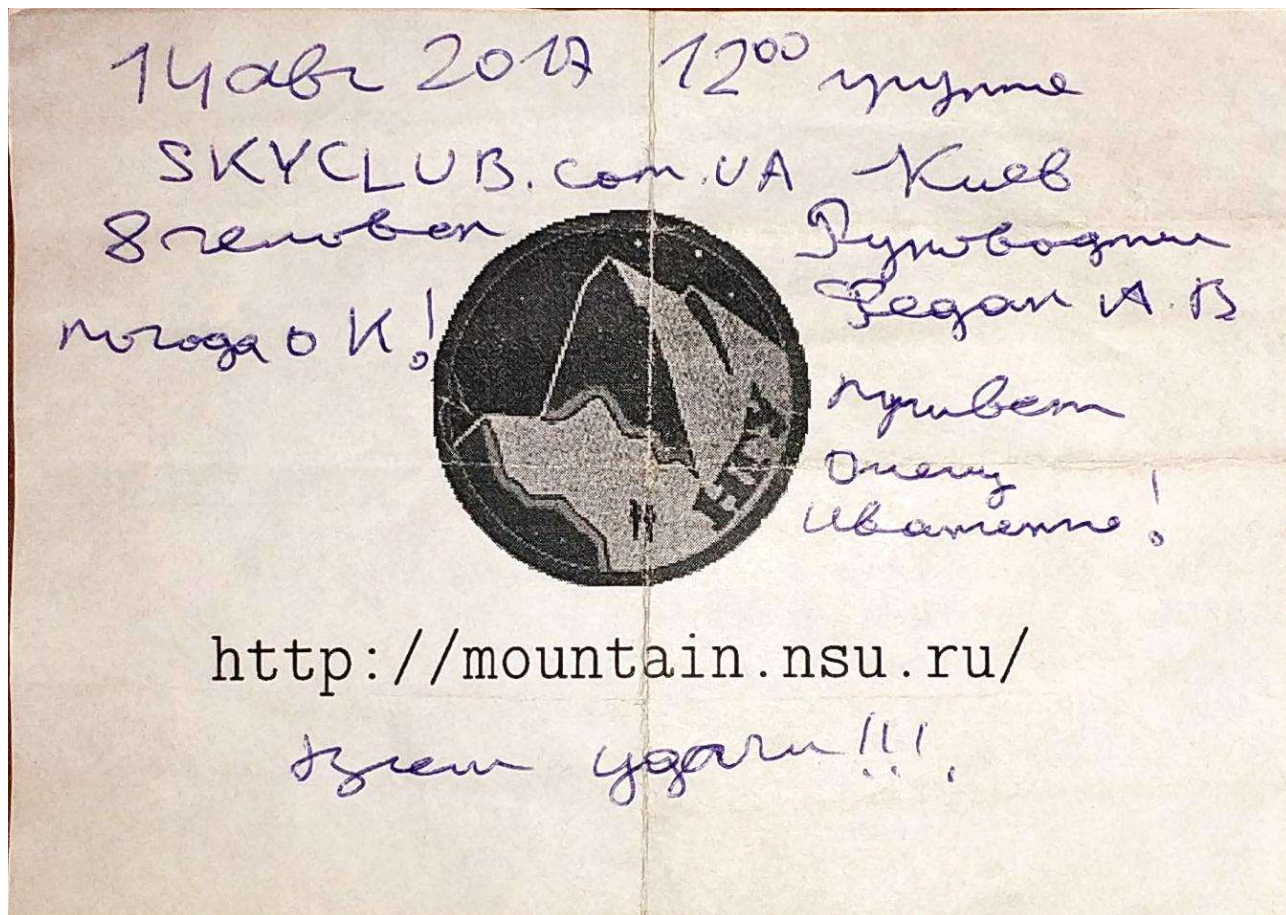 14 авг 2017 12⁰⁰ группа
SKYCLUB.com.UA Киев
8 человек
Руководитель
Федан А.В
погода ОК!
привет
Олегу
Иваненко!
НГУ
http://mountain.nsu.ru/
Всем удачи!!!